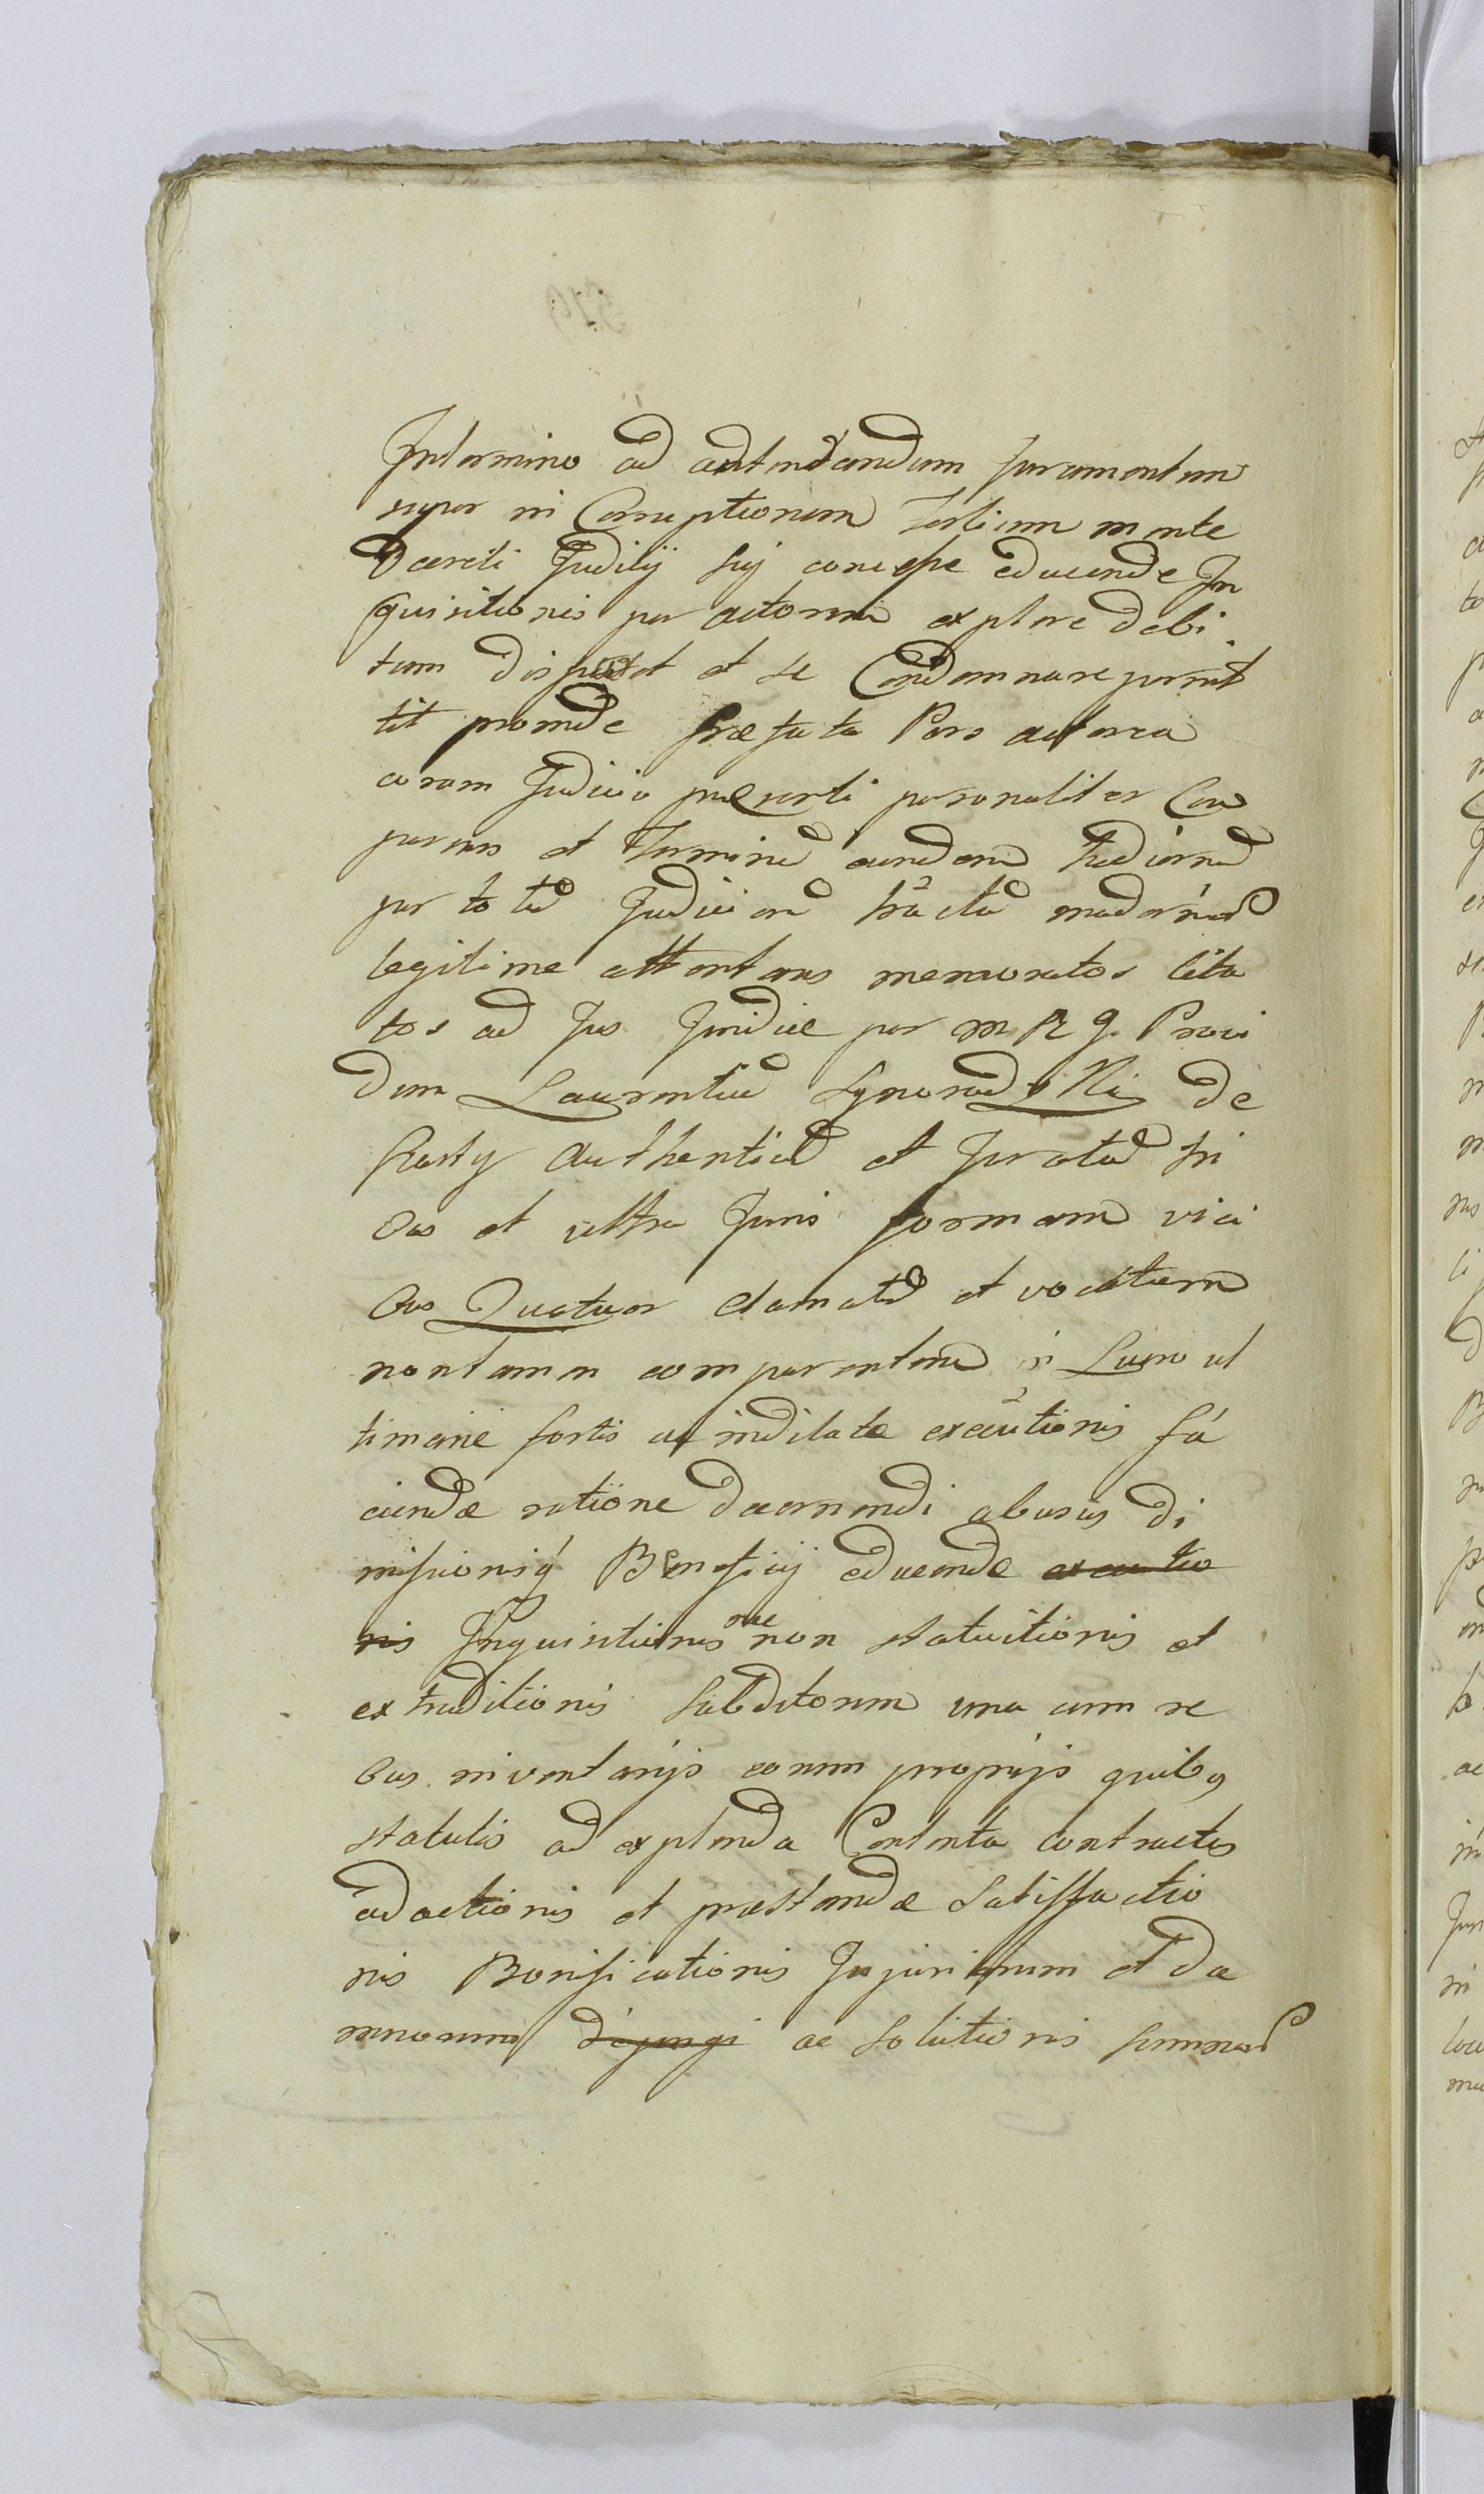 In termino ad auten dandum Juramentum
super in Corruptionem Testium mente
Decreti Judicij sui concessae educendae In
quisitionis per actorem explere debi
tum dis putet et se Condemnare permit
tit proinde Praefata Pars actorea
coram Judicio praesenti personaliter Com
parens et Terminũ eundem hodiernũ
per totũ Judiciorũ tractũ modernũ
legitime attentans memoratos Cita
tos ad Jus Juridice per M R G. Provi
dum Laurentiũ de
Authenticũ et Juratũ tri
bus et ultra Juris formam vici
bus Quatuor clamatũ et vocatum
non tamen comparentem in Lucro ul
timariae sortis ac indilatae executionis fa
ciendae ratione decernendi abusus di
missionisq́ Beneficij educendae executio
nis Inquisitionis nec non statuitionis et
extraditionis Subditorum una cum re
bus inventarijs eorum proprijs quibq
statutis ad explenda Contenta contractus
adactionis et praestandae Satisfactio
nis Bonificationis Injuriarum et Da
mnorum ac solutionis summarũ